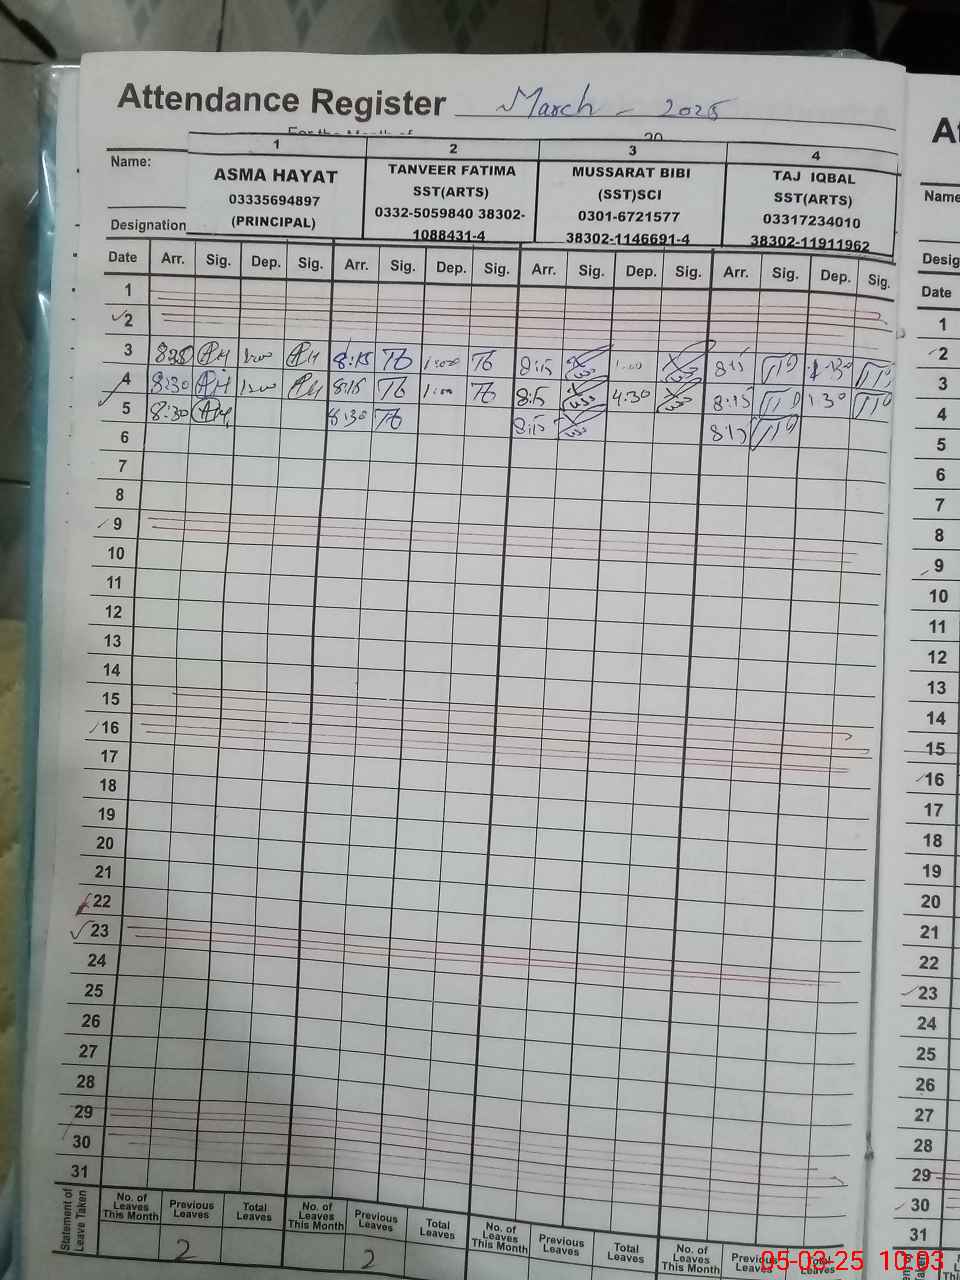 Attendance Register March - 2025
20
Name:
1 2 3 4
ASMA HAYAT TANVEER FATIMA MUSSARAT BIBI TAJ IQBAL
03335694897 SST(ARTS) (SST)SCI SST(ARTS)
(PRINCIPAL) 0332-5059840 38302- 0301-6721577 03317234010
1088431-4 38302-1146691-4 38302-11911962
Designation
Date Arr. Sig. Dep. Sig. Arr. Sig. Dep. Sig. Arr. Sig. Dep. Sig. Arr. Sig. Dep. Sig.
1
2
3 AH AH 8:15 1:00 8:15 1:00 8:15 1:30
4 8:30 AH AH 8:15 1:00 8:15 4:30 8:15 1:30
5 8:30 AH 8:30 8:15 8:15
6
7
8
9
10
11
12
13
14
15
16
17
18
19
20
21
22
23
24
25
26
27
28
29
30
31
Statement of Leave Taken
No. of Leaves This Month Previous Leaves Total Leaves No. of Leaves This Month Previous Leaves Total Leaves No. of Leaves This Month Previous Leaves Total Leaves No. of Leaves This Month
2 2
Name
Desig
Date
1
2
3
4
5
6
7
8
9
10
11
12
13
14
15
16
17
18
19
20
21
22
23
24
25
26
27
28
29
30
31
05-03-25 10:03